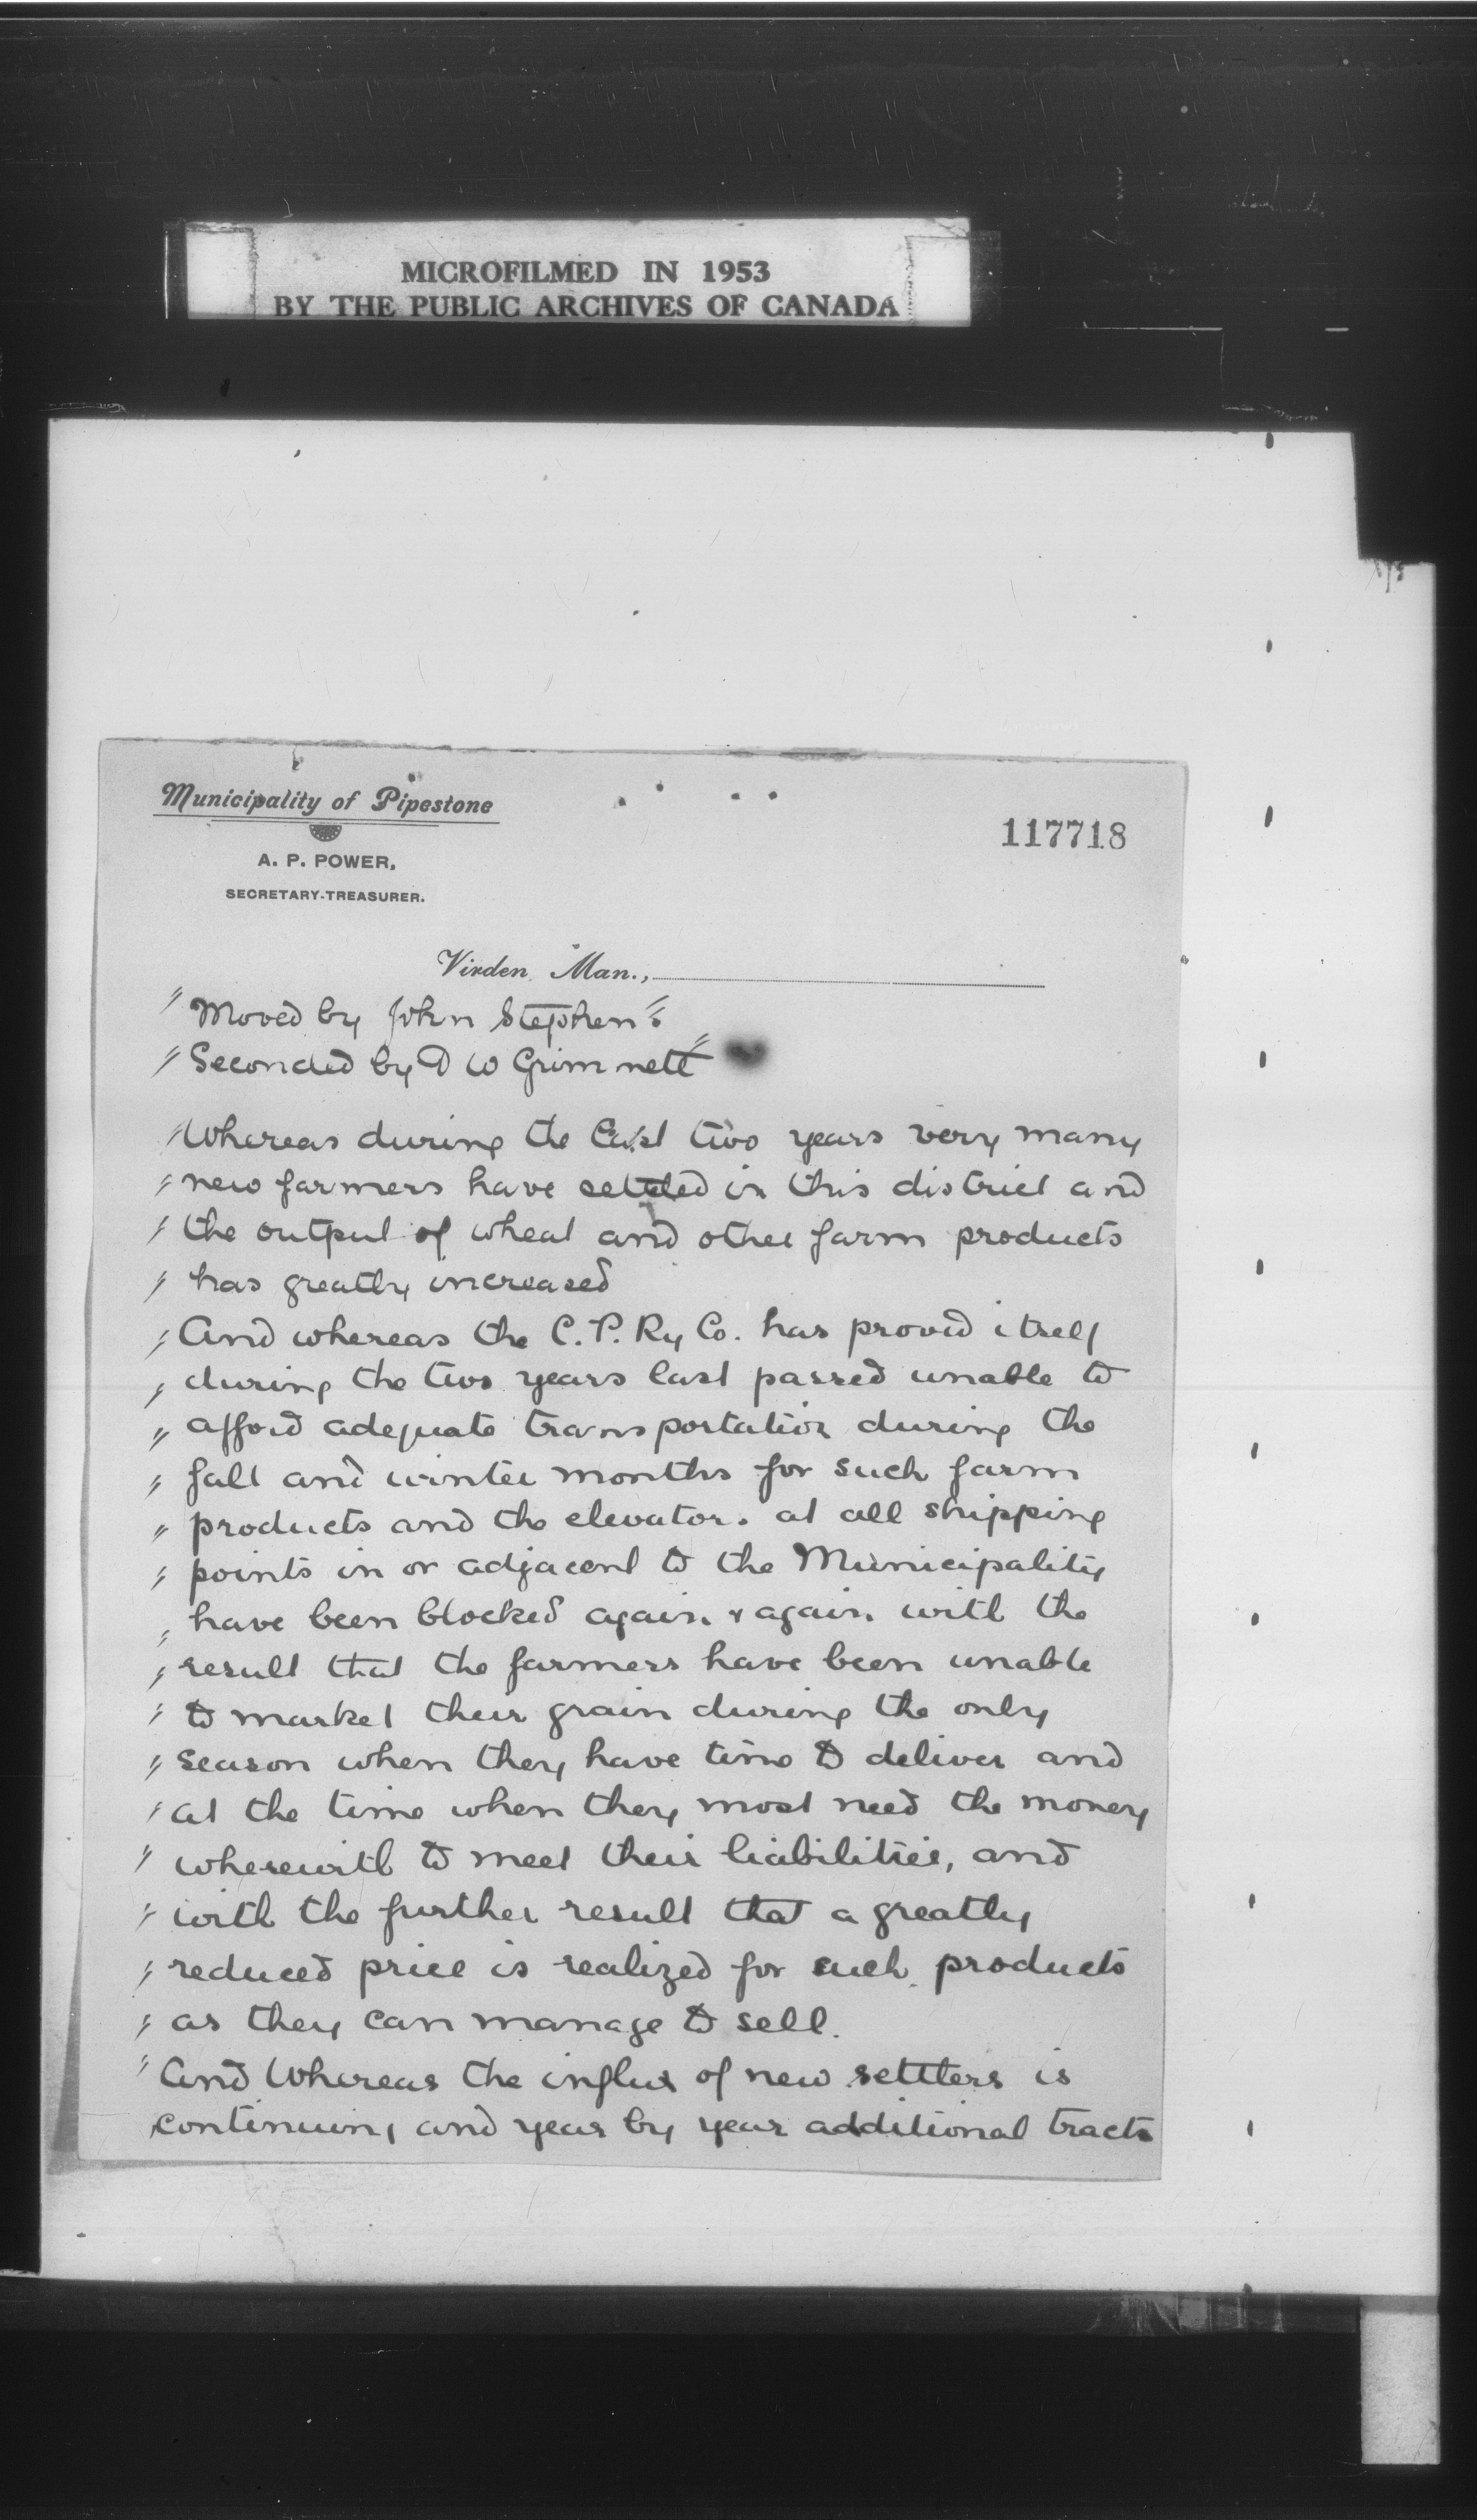 MICROFILMED IN 1953
BY THE PUBLIC ARCHIVES OF CANADA
Municipality of Pipestone
117718
A. P. POWER,
SECRETARY-TREASURER.
Virden, Man.,
" Moved by John Stephens "
" Seconded by D W Grimmett "
" Whereas during the last two years very many
" new farmers have settled in this district and
" the output of wheat and other farm products
" has greatly increased
" And whereas the C. P. Ry Co. has proved itself
" during the two years last passed unable to
" afford adequate transportation during the
" fall and winter months for such farm
" products and the elevators at all shipping
" points in or adjacent to the Municipality
" have been blocked again & again with the
" result that the farmers have been unable
" to market their grain during the only
" season when they have time to deliver and
" at the time when they most need the money
" wherewith to meet their liabilities, and
" with the further result that a greatly
" reduced price is realized for such products
" as they can manage to sell.
" And Whereas the influx of new settlers is
continuing and year by year additional tracts